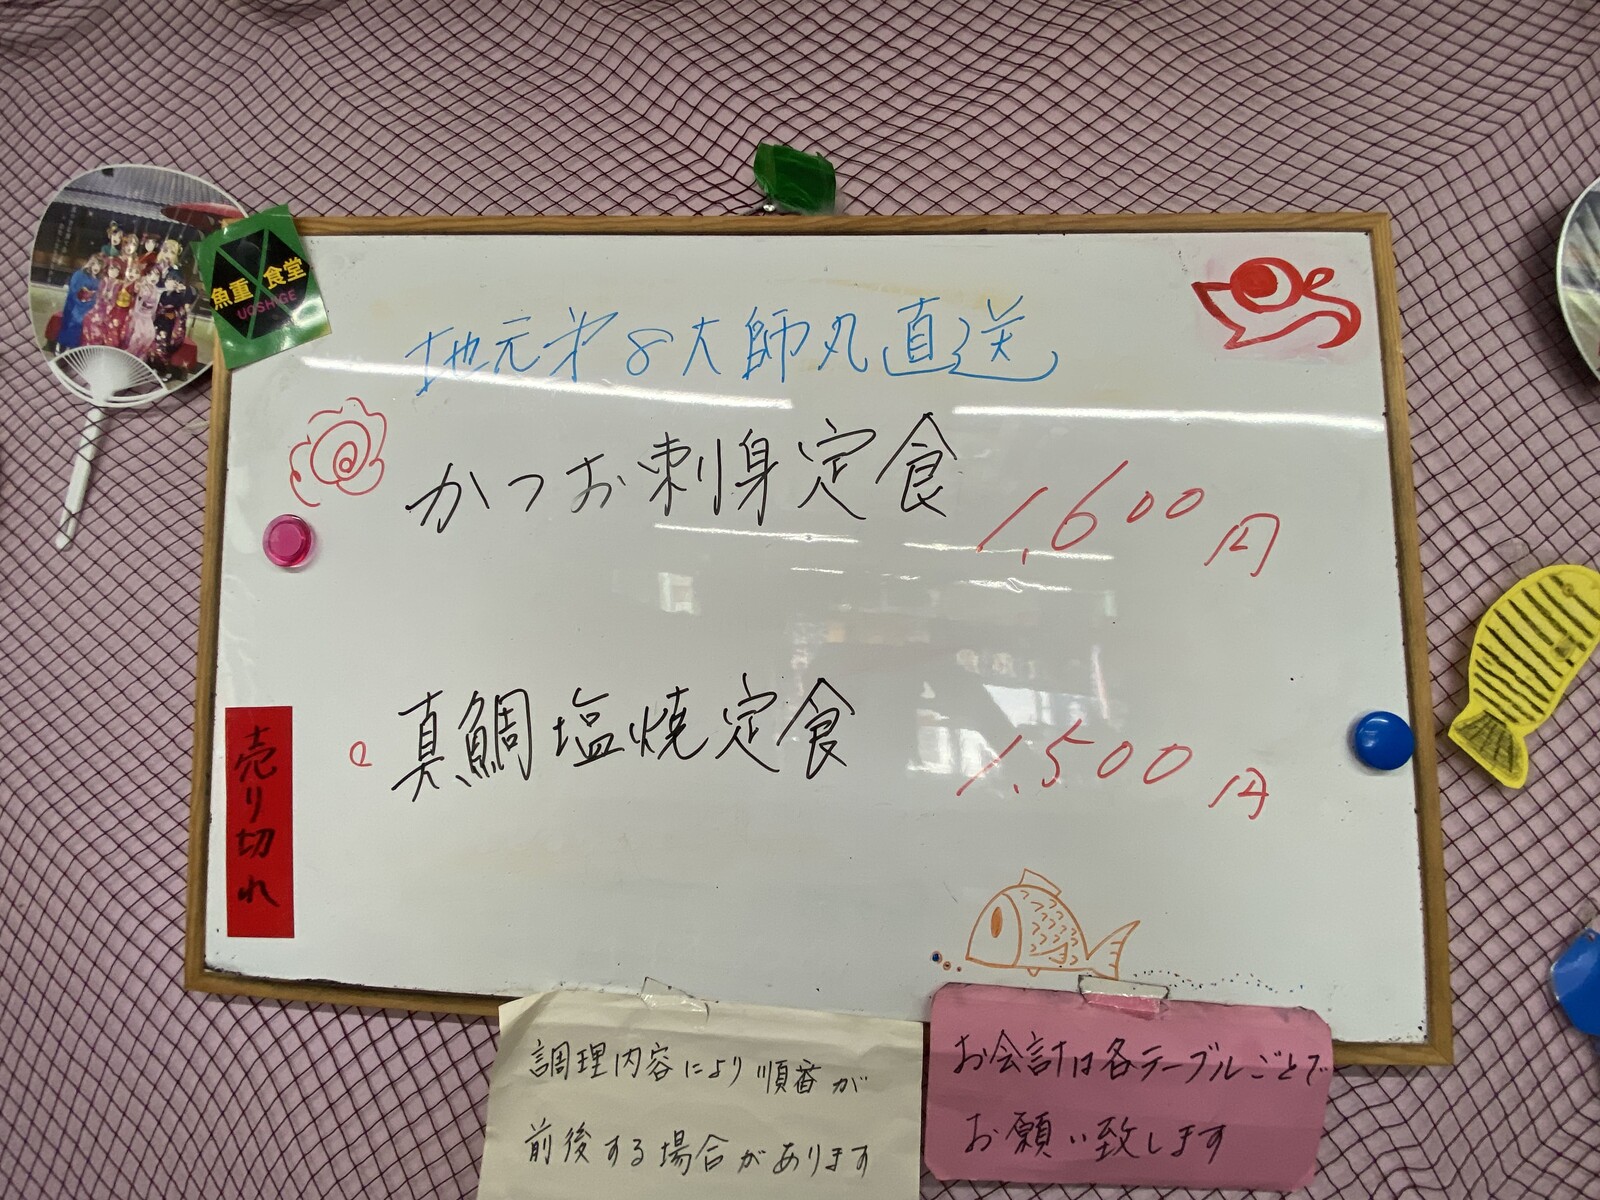 魚重食堂
UOSHIGE
地元第8大師丸直送
かつお刺身定食 1,600円
真鯛塩焼定食 1,500円
売り切れ
調理内容により順番が
前後する場合があります
お会計は各テーブルごとで
お願い致します